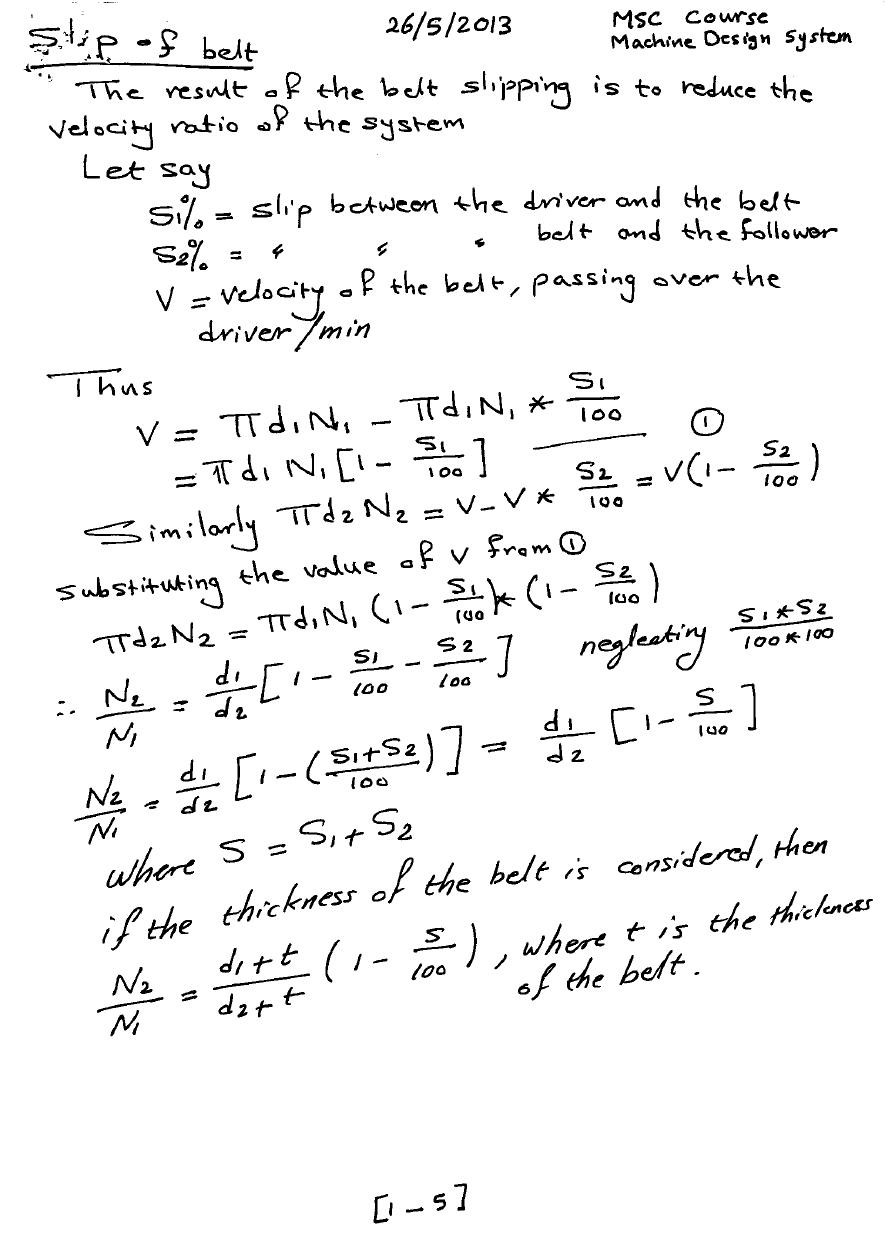 Slip of belt
26/5/2013
MSC Course
Machine Design System
The result of the belt slipping is to reduce the
velocity ratio of the system
Let say
S1% = slip between the driver and the belt
S2% = " " " belt and the follower
V = velocity of the belt, passing over the
driver/min
Thus
V = πd1N1 - πd1N1 * S1/100
= πd1N1[1 - S1/100] ——— ①
Similarly πd2N2 = V - V * S2/100 = V(1 - S2/100)
substituting the value of v from ①
πd2N2 = πd1N1 (1 - S1/100) * (1 - S2/100)
∴ N2/N1 = d1/d2 [1 - S1/100 - S2/100] neglecting S1*S2/100*100
N2/N1 = d1/d2 [1 - (S1+S2/100)] = d1/d2 [1 - S/100]
where S = S1 + S2
if the thickness of the belt is considered, then
N2/N1 = d1+t/d2+t (1 - S/100), where t is the thickness
of the belt.
[1 - 5]